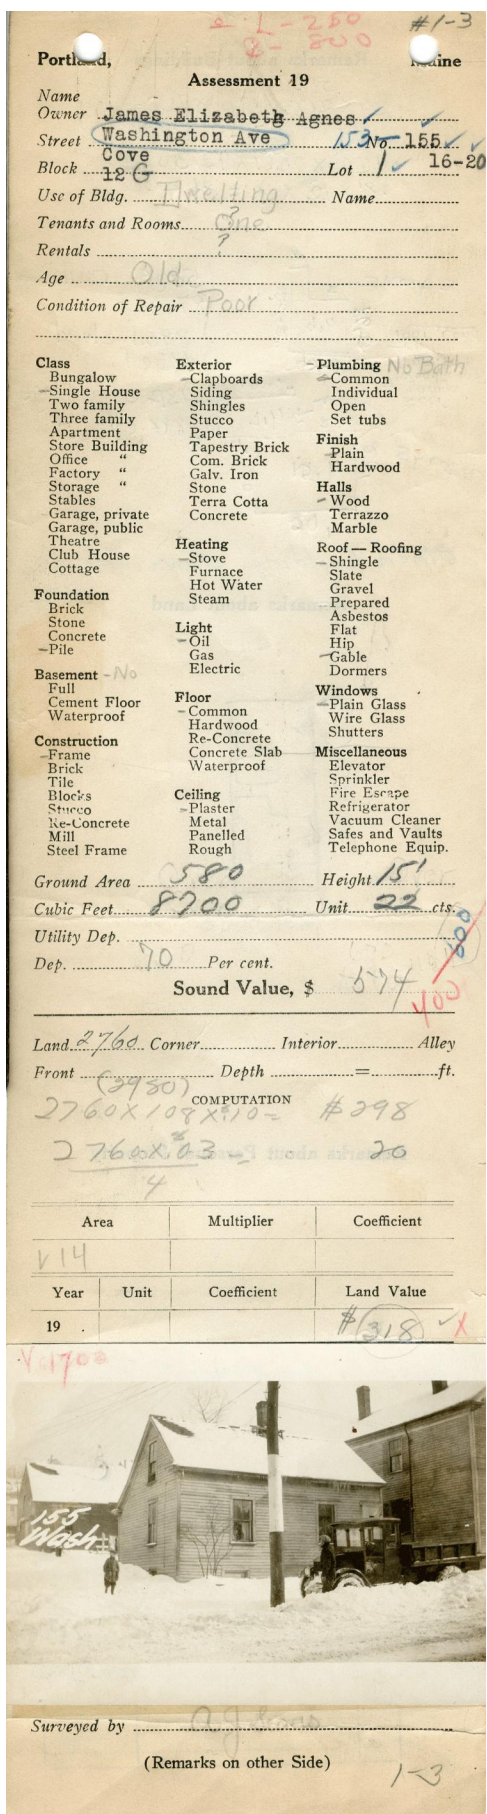 L-250 #1-3
B-800
Portland, Maine
Assessment 19
Name
Owner James Elizabeth Agnes
Street Washington Ave 153 No. 155
Cove 16-20
Block 12 G Lot 1
Use of Bldg. Dwelling Name
?
Tenants and Rooms One
Rentals ?
Age Old
Condition of Repair Poor
Class
Bungalow
-Single House
Two family
Three family
Apartment
Store Building
Office "
Factory "
Storage "
Stables
Garage, private
Garage, public
Theatre
Club House
Cottage
Foundation
Brick
Stone
Concrete
-Pile
Basement -No
Full
Cement Floor
Waterproof
Construction
-Frame
Brick
Tile
Blocks
Stucco
Re-Concrete
Mill
Steel Frame
Exterior
-Clapboards
Siding
Shingles
Stucco
Paper
Tapestry Brick
Com. Brick
Galv. Iron
Stone
Terra Cotta
Concrete
Heating
-Stove
Furnace
Hot Water
Steam
Light
-Oil
Gas
Electric
Floor
-Common
Hardwood
Re-Concrete
Concrete Slab
Waterproof
Ceiling
-Plaster
Metal
Panelled
Rough
-Plumbing No Bath
-Common
Individual
Open
Set tubs
Finish
-Plain
Hardwood
Halls
-Wood
Terrazzo
Marble
Roof — Roofing
-Shingle
Slate
Gravel
-Prepared
Asbestos
Flat
Hip
-Gable
Dormers
Windows
-Plain Glass
Wire Glass
Shutters
Miscellaneous
Elevator
Sprinkler
Fire Escape
Refrigerator
Vacuum Cleaner
Safes and Vaults
Telephone Equip.
Ground Area 580 Height 15'
Cubic Feet 8700 Unit 22 cts.
Utility Dep. 800
Dep. 70 Per cent.
Sound Value, $ 574 400
Land 2760 Corner Interior Alley
Front Depth = ft.
(2980)
COMPUTATION
2760 X 108 X .10 = $298
2760 X 03 = 20
4
Area Multiplier Coefficient
V14
Year Unit Coefficient Land Value
19 $318 X
V-1700
155
Wash
Surveyed by
(Remarks on other Side)
1-3